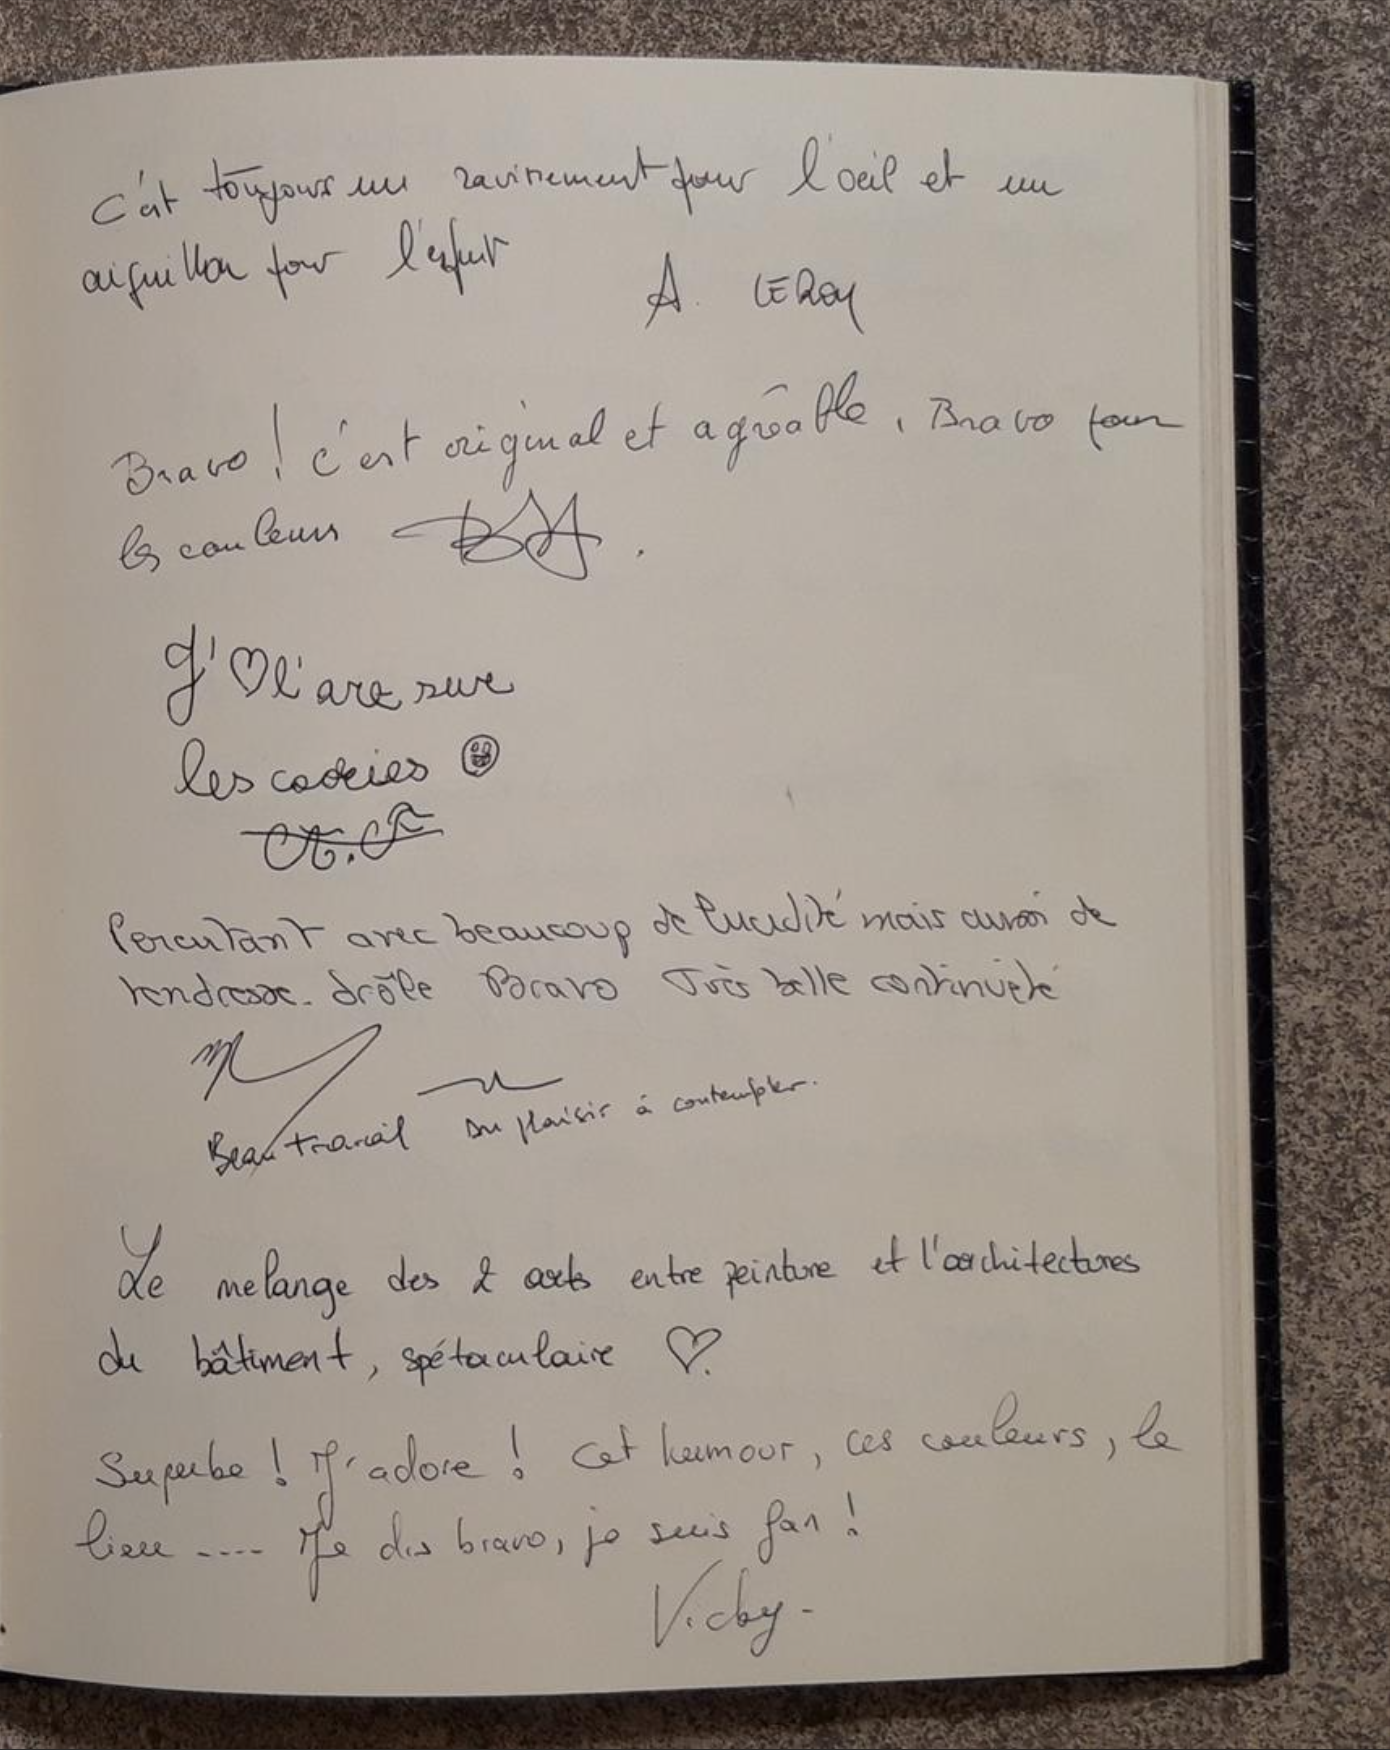 C'est toujours un ravissement pour l'oeil et un
aiguillon pour l'esprit
A. LEROY
Bravo ! c'est original et agréable, Bravo pour
les couleurs
J'♡ l'art sur
les cookies
Percutant avec beaucoup de lucidité mais aussi de
tendresse. drôle Bravo Très belle continuité
Beau travail Du plaisir à contempler.
Le melange des 2 arts entre peinture et l'architectures
du bâtiment, spétaculaire ♡.
Superbe ! J'adore ! Cet humour, ces couleurs, le
lieu .... Je dis bravo, je suis fan !
Vicky -